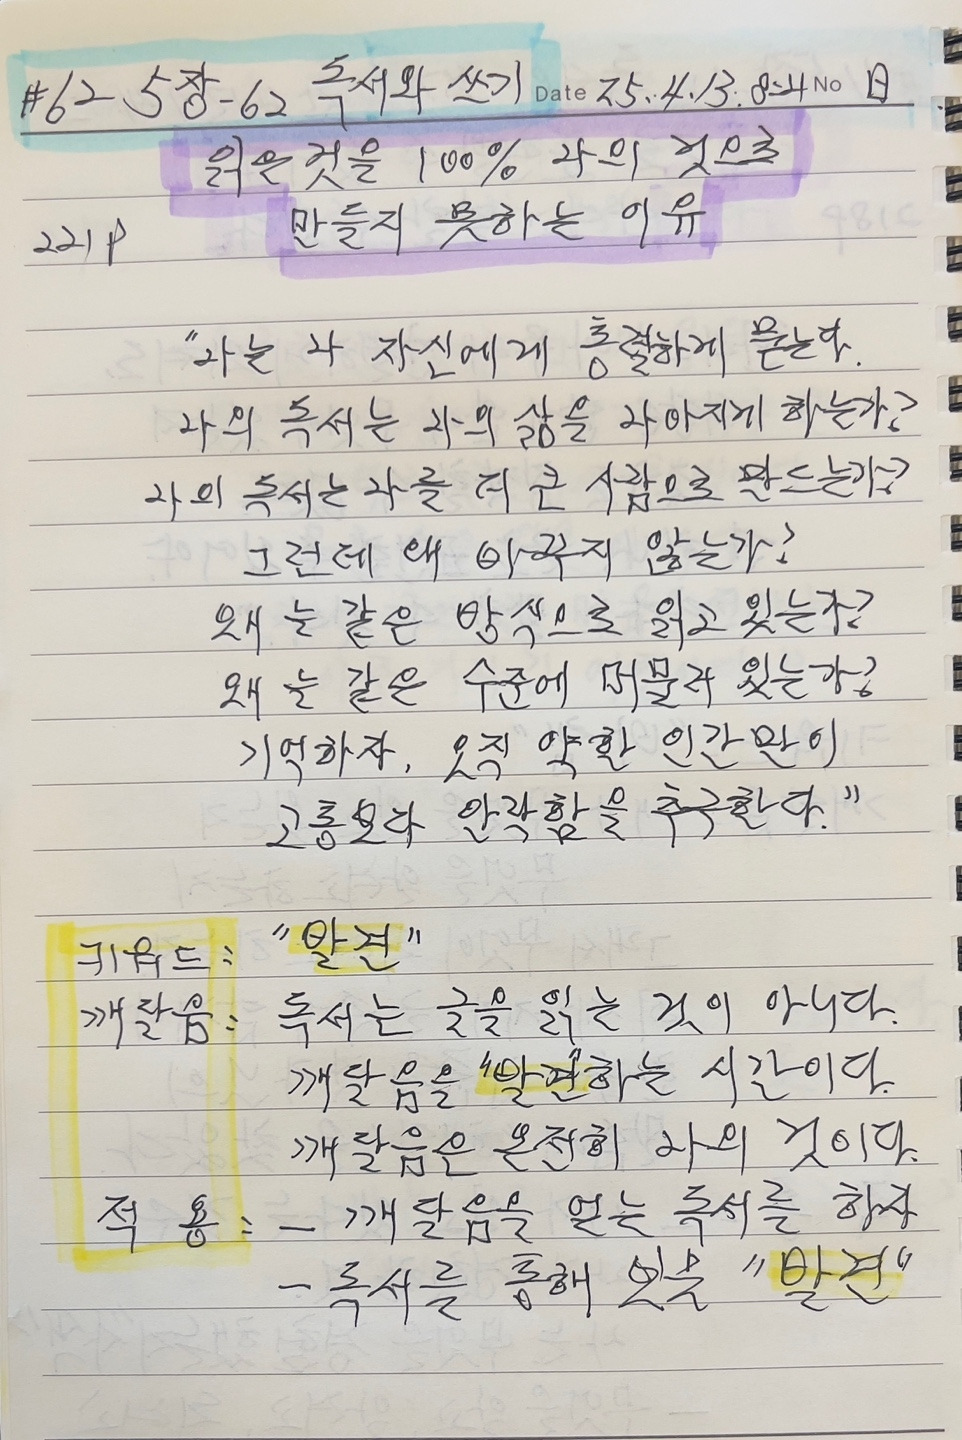 #62 5장-62 독서와 쓰기 Date 25.4.13. 8:4 No 日
읽은 것을 100% 나의 것으로
만들지 못하는 이유
221P
"나는 나 자신에게 통렬하게 묻는다.
나의 독서는 나의 삶을 나아지게 하는가?
나의 독서는 나를 더 큰 사람으로 만드는가?
그런데 왜 바꾸지 않는가?
왜 늘 같은 방식으로 읽고 있는가?
왜 늘 같은 수준에 머물러 있는가?
기억하자, 오직 약한 인간만이
고통보다 안락함을 추구한다."
키워드: "발견"
깨달음: 독서는 글을 읽는 것이 아니다.
깨달음을 "발견"하는 시간이다.
깨달음은 온전히 나의 것이다.
적 용: - 깨달음을 얻는 독서를 하자
- 독서를 통해 "발견"